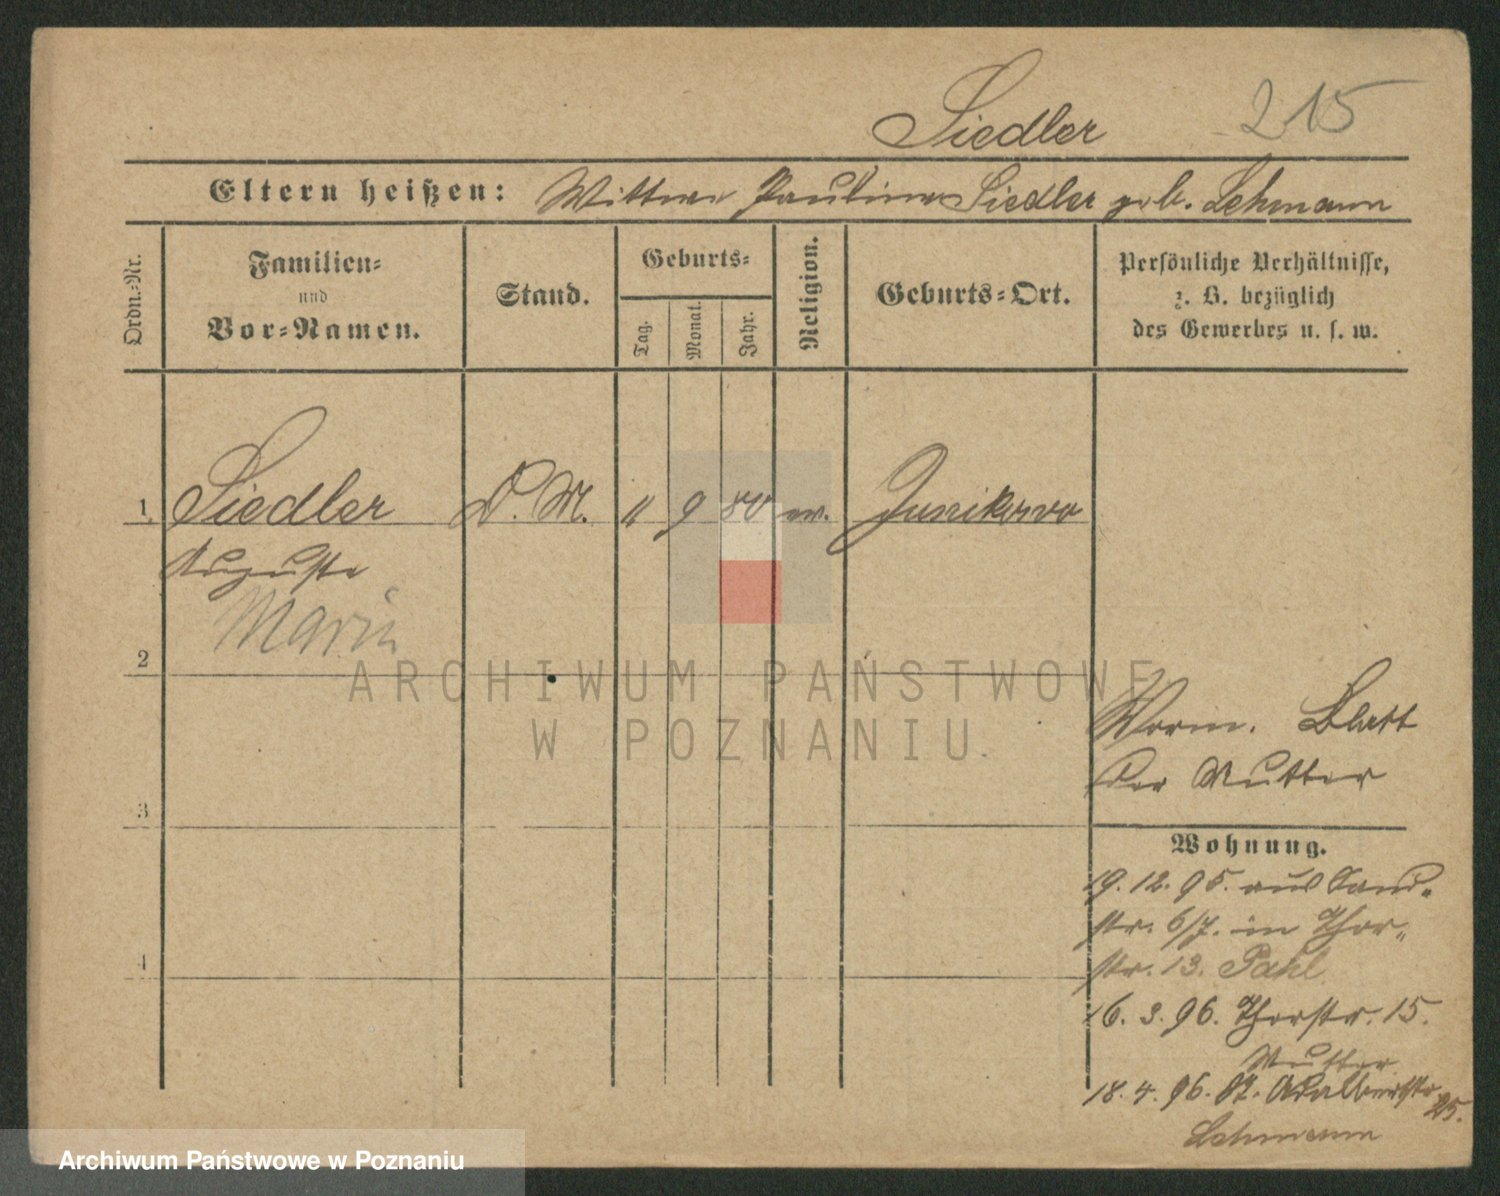 Siedler 215
Eltern heißen: Wittwe Pauline Siedler geb. Lehmann
Ordn.-Nr.
Familien-
und
Vor-Namen.
Stand.
Geburts-
Tag.
Monat.
Jahr.
Religion.
Geburts-Ort.
Persönliche Verhältnisse,
z. B. bezüglich
des Gewerbes u. s. w.
1 Siedler D. M. 11 9 80 ev. Junikowo
Auguste
Marie
2
ARCHIWUM PAŃSTWOWE
W POZNANIU
Worin. Blatt
der Mutter
3
Wohnung.
19. 12. 95. aus Sand-
str. 6/7. in Thor-
4
str. 13. Pahl
16. 3. 96. Thorstr. 15.
Mutter
18. 4. 96. Adalbertstr. 25.
Lehmann
Archiwum Państwowe w Poznaniu